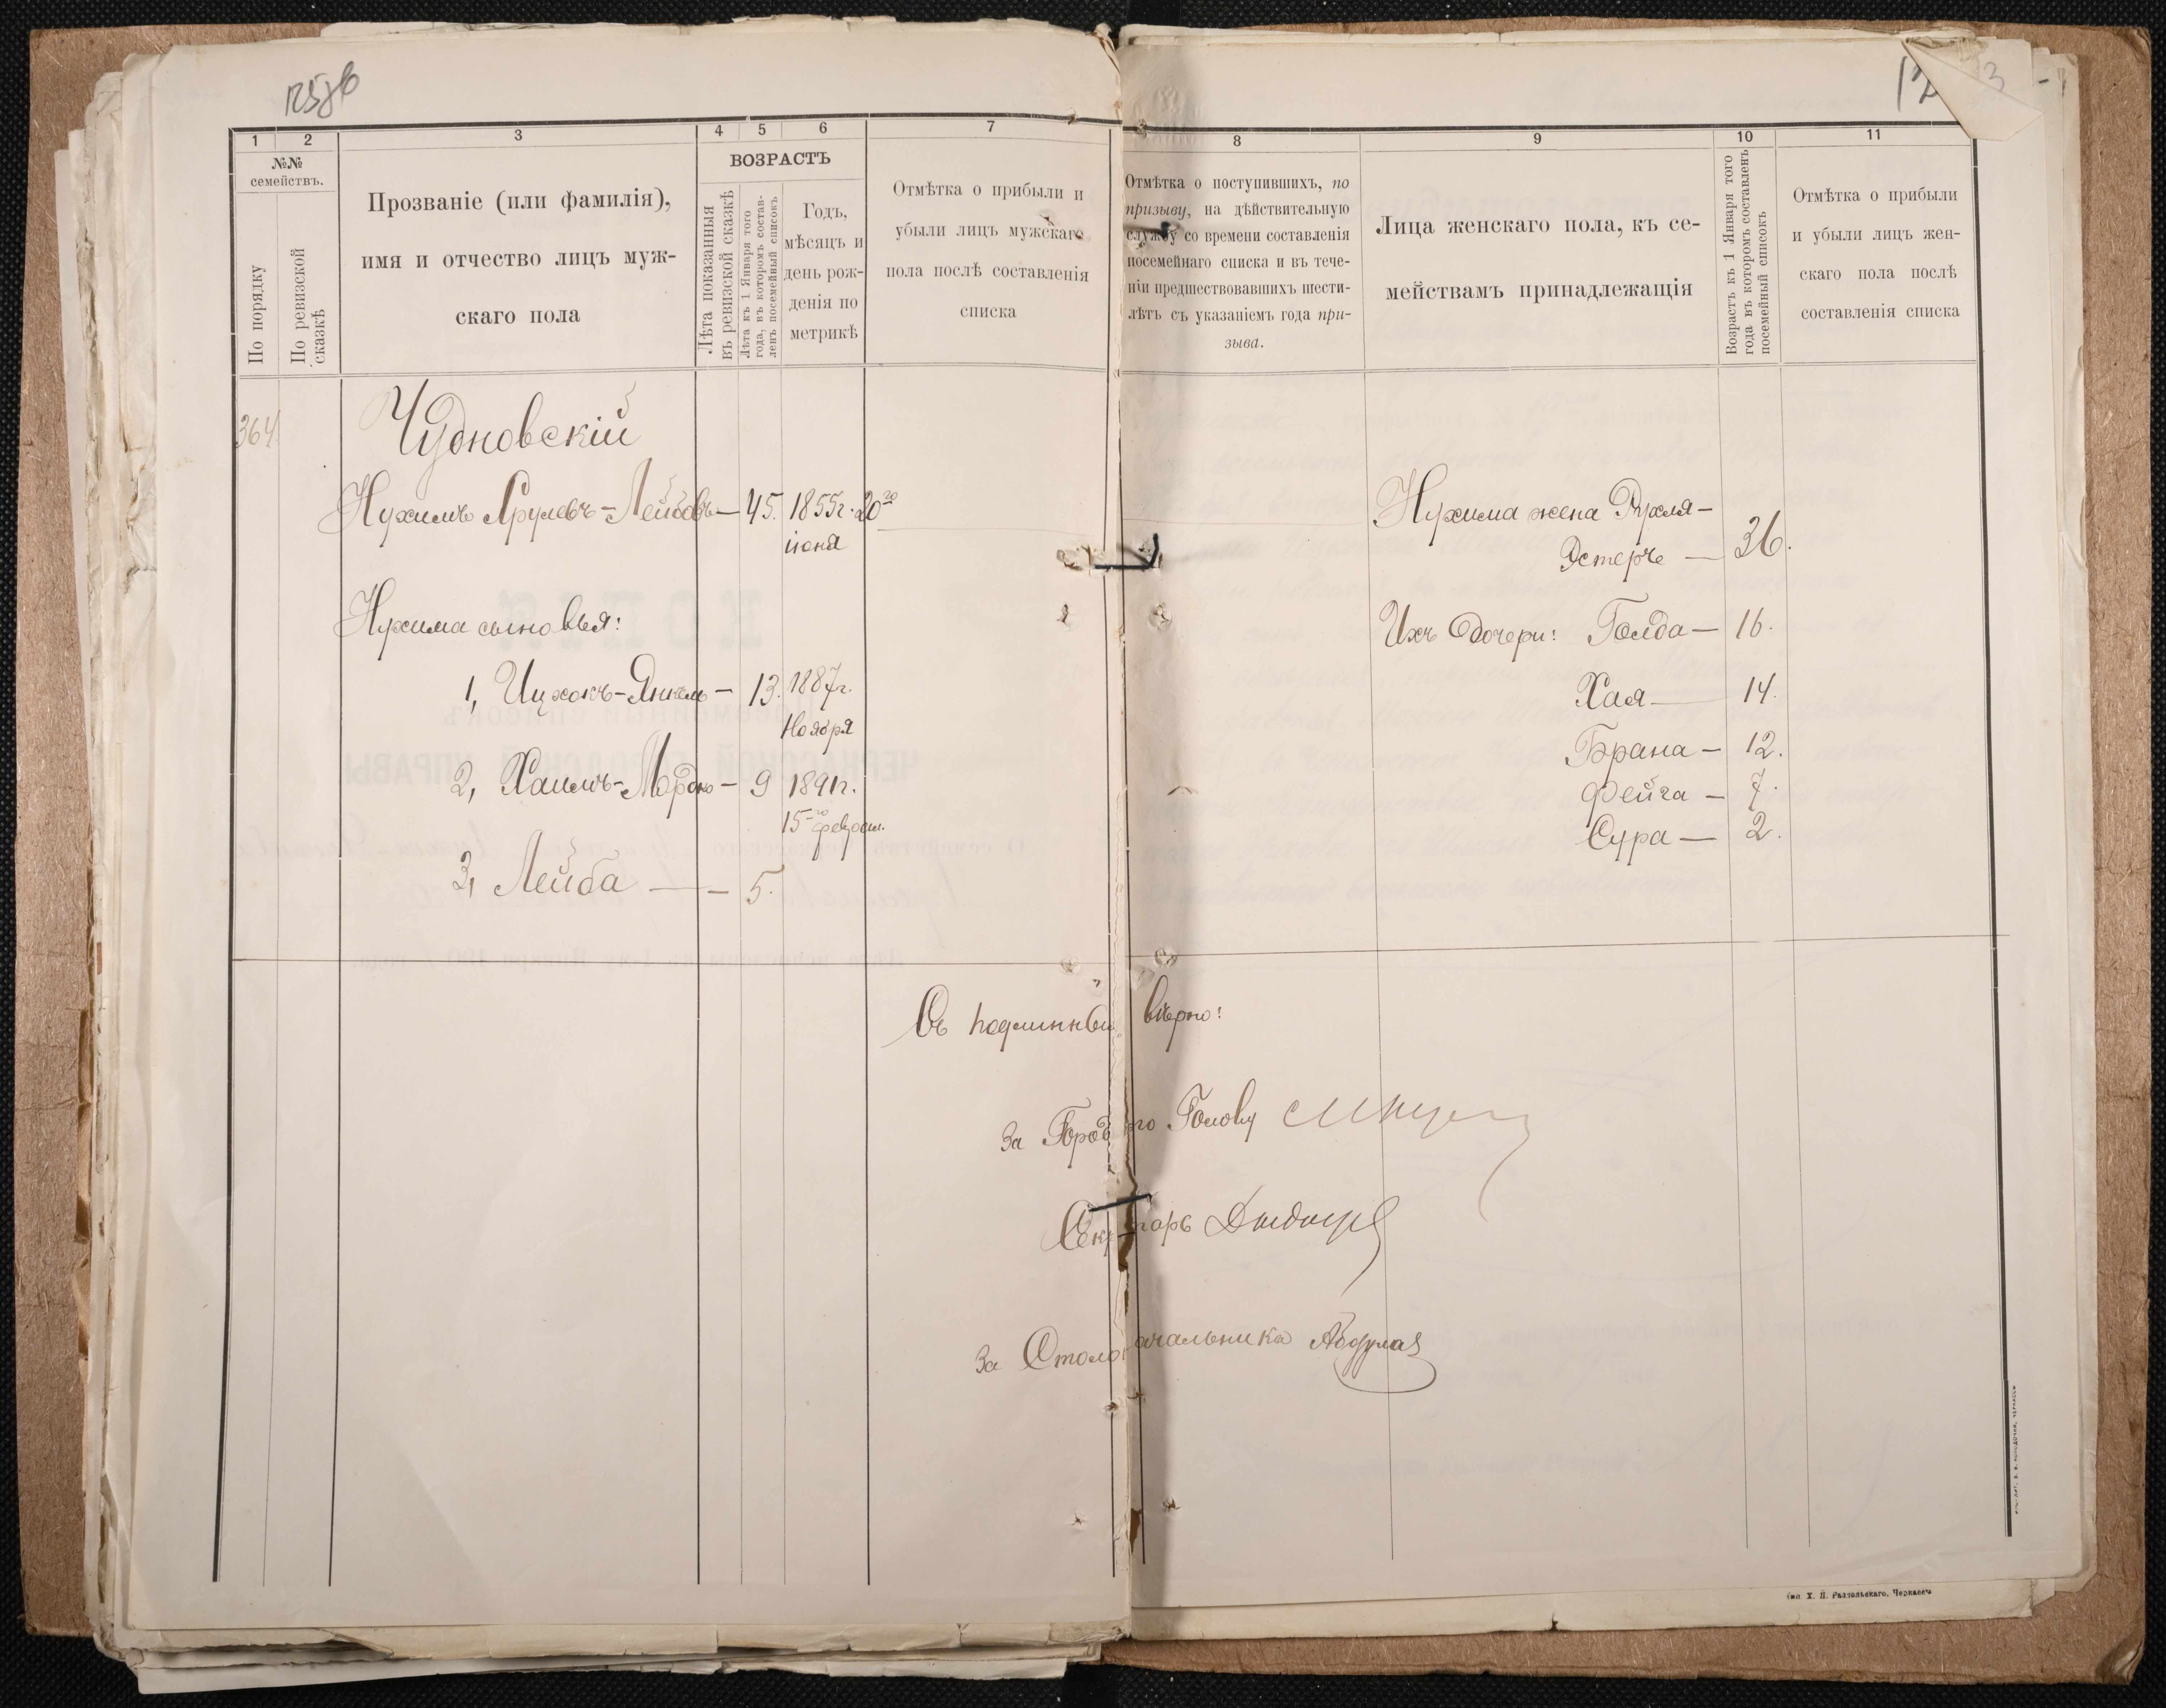 125об
1
2
3
4
5
6
7
№№
семействъ.
По порядку
По ревизской
сказкѣ
Прозваніе (или фамилія),
имя и отчество лицъ муж-
скаго пола
ВОЗРАСТЪ
Лѣта показанныя
въ ревизской сказкѣ
Лѣта къ 1 Января того
года, въ которомъ состав-
ленъ посемейный списокъ
Годъ,
мѣсяцъ и
день рож-
денія по
метрикѣ
Отмѣтка о прибыли и
убыли лицъ мужскаго
пола послѣ составленія
списка
364
Чудновскій
Нухимъ Срулевъ-Лейбовъ — 45. 1855г. 20го
іюня
Нухима сыновья:
1, Ицхокъ-Янкель — 13. 1887г.
Ноября
2, Хаимъ-Мордко — 9 1891г.
15го февраля.
3, Лейба — — 5.
8
9
10
11
Отмѣтка о поступившихъ, по
призыву, на дѣйствительную
службу со времени составленія
посемейнаго списка и въ тече-
ніи предшествовавшихъ шести-
лѣтъ съ указаніемъ года при-
зыва.
Лица женскаго пола, къ се-
мействамъ принадлежащія
Возрастъ къ 1 Января того
года въ которомъ составленъ
посемейный списокъ
Отмѣтка о прибыли
и убыли лицъ жен-
скаго пола послѣ
составленія списка
Нухима жена Рухля —
Эстеръ — 36.
Ихъ дочери: Голда — 16.
Хая — 14.
Брана — 12.
Фейга — 7.
Сура — 2.
Съ подлиннымъ вѣрно:
За Город го Голову
Секретарь
За Столоначальника
Тип. Х. П. Разтольскаго, Черкассы